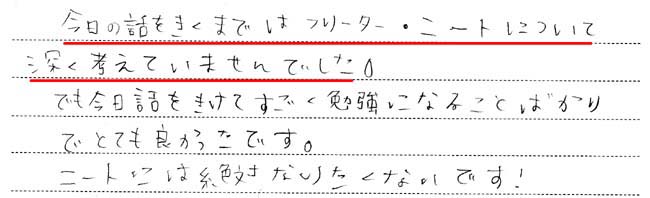 今日の話をきくまでは フリーター・ニートについて
深く考えていませんでした。
でも今日話をきけてすごく勉強になることばかり
でとても良かったです。
ニートには絶対なりたくないです！